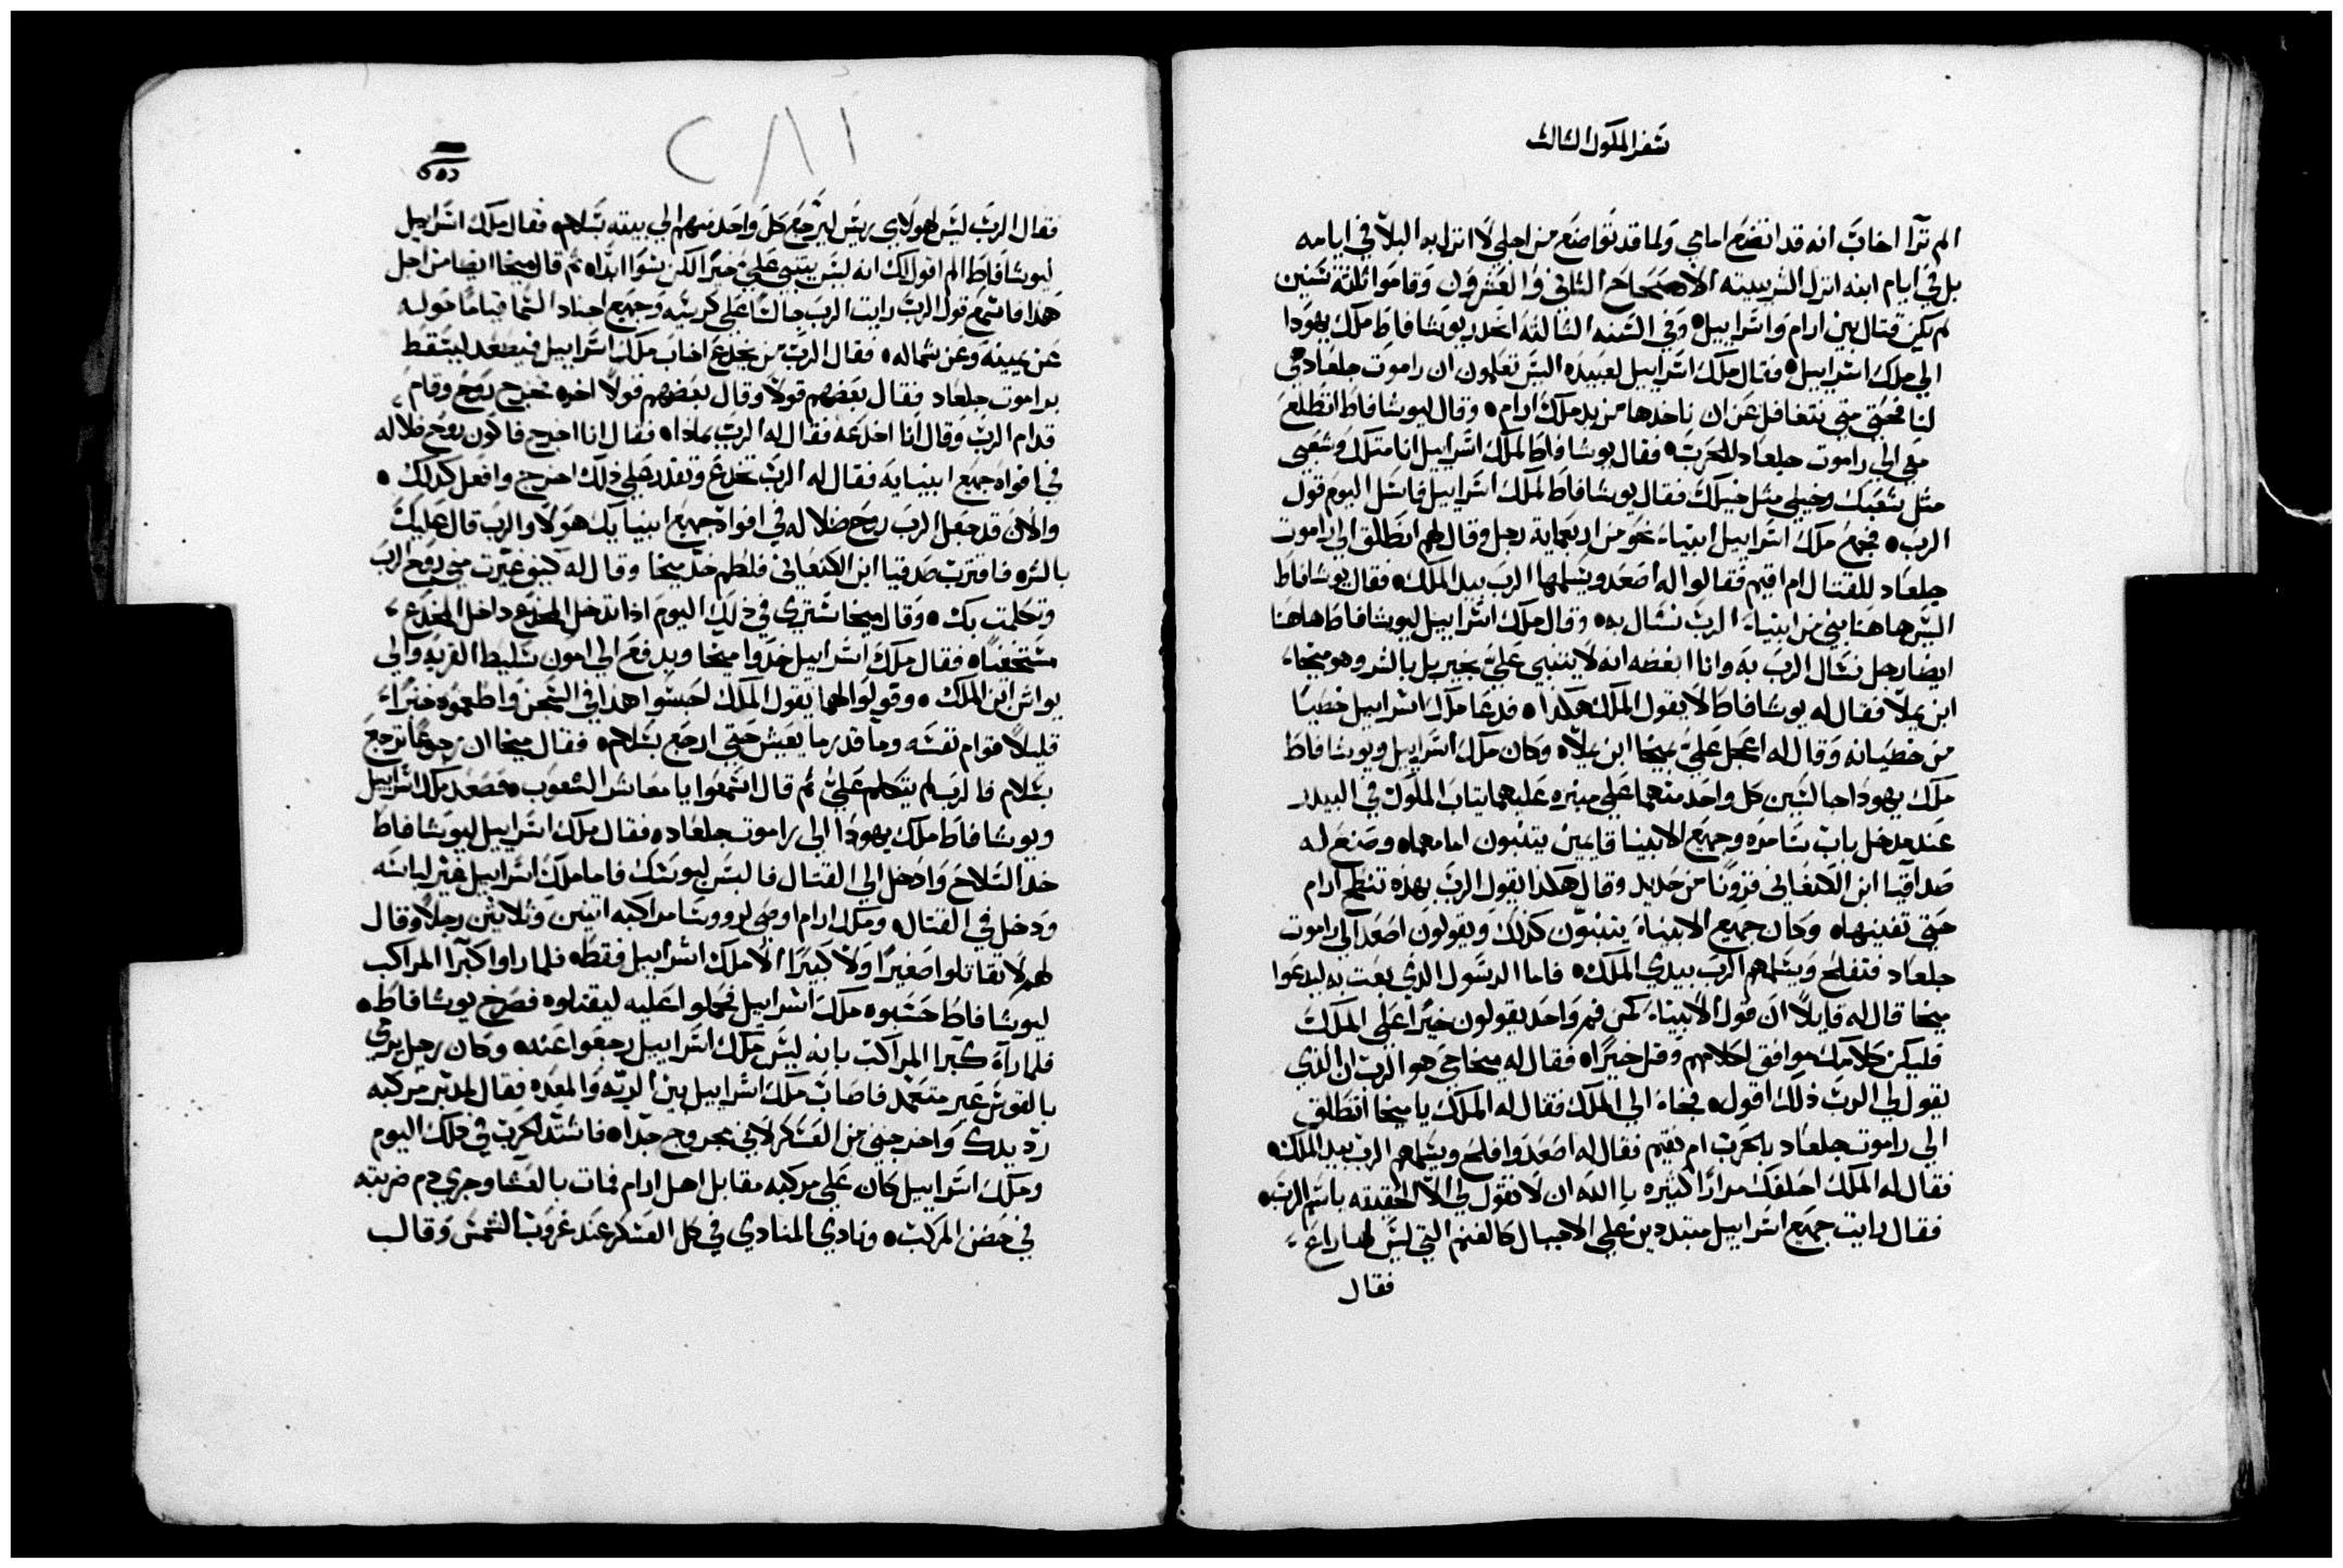 سفر الملوك الثالث
الم ترا اخاب انه قد اتضع امامي ولما قد تواضع من اجلي لا انزل به البلا في ايامه
بل في ايام ابنه انزل الشر ببيته الاصحاح الثاني والعشرون وقاموا ثلثة سنين
لم يكن قتال بين ارام واسراييل وفي السنه الثالثه انحدر يوشافاط ملك يهودا
الي ملك اسراييل فقال ملك اسراييل لعبيده اليس تعلمون ان راموت جلعاد هي
لنا فحتي متي نتغافل عن ان ناخدها من يد ملك ارام وقال ليوشافاط اتطلع
معي الي راموت جلعاد للحرب فقال يوشافاط لملك اسراييل انا مثلك وشعبي
مثل شعبك وخيلي مثل خيلك فقال يوشافاط لملك اسراييل فاسل اليوم قول
الرب فجمع ملك اسراييل انبياء نحو من اربعماية رجل وقال لهم انطلق الي راموت
جلعاد للقتال ام اقيم فقالوا له اصعد ويسلمها الرب بيد الملك فقال يوشافاط
اليس هاهنا نبي من انبياء الرب نسال به وقال ملك اسراييل ليوشافاط هاهنا
ايضا رجل نسال الرب به وانا ابغضه انه لا يتنبي علي بخير بل بالشر وهو ميخا
ابن يملا فقال له يوشافاط لا يقول الملك هكذا فدعا ملك اسراييل خصيا
من خصيانه وقال له اعجل علي بميخا ابن يملا وكان ملك اسراييل ويوشافاط
ملك يهودا جالسين كل واحد منهما علي منبره عليهما تياب الملوك في البيدر
عند مدخل باب سامره وجميع الانبيا قايمين يتنبون امامهما وصنع له
صداقيا ابن الكنعاني قرونا من حديد وقال هكذا يقول الرب بهذه تنطح ارام
حتي تفنيها وكان جميع الانبياء يتنبون كذلك ويقولون اصعد الي راموت
جلعاد فتفلح ويسلمهم الرب بيدي الملك فاما الرسول الذي بعت به ليدعوا
ميخا قال له قايلا ان قول الانبياء كمن فم واحد يقولون خيرا علي الملك
فليكن كلامك موافق لكلامهم وقل خيرا فقال له ميخا حي هو الرب ان الذي
يقول لي الرب ذلك اقول فجاء الي الملك فقال له الملك يا ميخا انطلق
الي راموت جلعاد بالحرب ام نقيم فقال له اصعد وافلح ويسلمهم الرب بيد الملك
فقال له الملك احلفك مرارا كتيره بالله ان لا تقول لي الا الحقيقه باسم الرب
فقال رايت جميع اسراييل متبددين علي الاجبال كالغنم التي ليس لها راع
فقال
٢٨١
فقال الرب ليس لهولاي رييس ليرجع كل واحد منهم الي بيته بسلام فقال ملك اسراييل
ليوشافاط الم اقول لك انه ليس يتنبي علي خيرا لكن سوا ابدا تم قال ميخا ايضا من اجل
هذا فاسمع قول الرب رايت الرب جالسا علي كرسيه وجميع اجناد السما قياما حوله
عن يمينه وعن شماله فقال الرب من يخدع اخاب ملك اسراييل فيصعد ليسقط
براموت جلعاد فقال بعضهم قولا وقال بعضهم قولا اخر فخرج روح وقام
قدام الرب وقال انا اخدعه فقال له الرب بمادا فقال انا اخرج فاكون روح ضلاله
في افواه جميع انبيايه فقال له الرب تخدع وتقدر علي ذلك اخرج وافعل كذلك
والان قد جعل الرب روح ضلاله في افواه جميع انبيايك هولا والرب قال عليك
بالشر فاقترب صدقيا ابن الكنعاني فلطم خد ميخا وقال له كيف عبرت مني روح الرب
وتكلمت بك وقال ميخا سترى في ذلك اليوم اذا تدخل المخدع داخل المخدع
مستخفيا فقال ملك اسراييل خدوا ميخا ويدفع الي امون سليط القريه والي
يواش ابن الملك وقولوا لهما يقول الملك احبسوا هدا في السجن واطعموه خبزا
قليلا قوام نفسه وما قدر ما يعيش حتي ارجع بسلام فقال ميخا ان رجوعا ترجع
بسلام فالرب لم يتكلم علي تم قال اسمعوا يا معاشر الشعوب فصعد ملك اسراييل
ويوشافاط ملك يهودا الي راموت جلعاد فقال ملك اسراييل ليوشافاط
خد السلاح وادخل الي القتال فالبس لبوسك فاما ملك اسراييل غير لباسه
ودخل في القتال وملك ارام اوصى لرووسا مراكبه اتنين وثلاثين رجلا وقال
لهم لا تقاتلوا صغيرا ولا كبيرا الا ملك اسراييل فقط فلما راوا كبرا المراكب
ليوشافاط حسبوه ملك اسراييل فحملوا عليه ليقتلوه فصرخ يوشافاط
فلما راه كبرا المراكب بانه ليس ملك اسراييل رجعوا عنه وكان رجل يرمي
بالقوس غير متعمد فاصاب ملك اسراييل بين الريه والمعده فقال لمدبر مركبه
رد يدك واخرجني من العسكر لاني مجروح جدا فاشتد الحرب في ذلك اليوم
وملك اسراييل كان علي مركبه مقابل اهل ارام فمات بالعشا وجري دم ضربته
في حضن المركب ونادي المنادي في كل العسكر عند غروب الشمس وقال